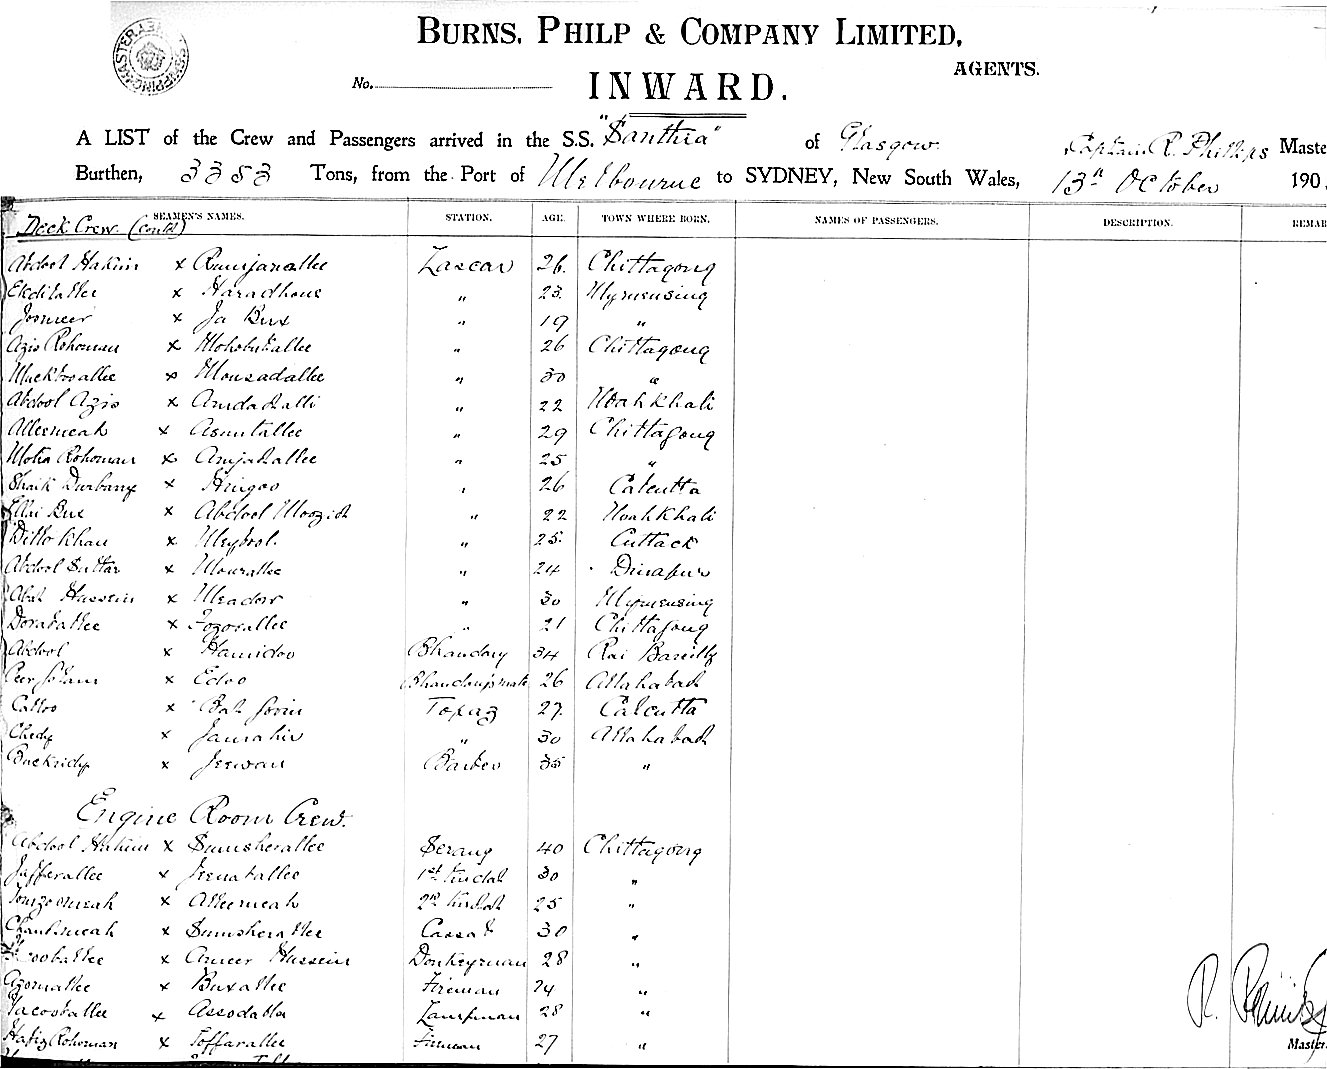 BURNS, PHILP & COMPANY LIMITED,
AGENTS.
No. INWARD.
A LIST of the Crew and Passengers arrived in the S.S. "Santhia" of Glasgow Captain R. Phillips Maste
Burthen, 3353 Tons, from the Port of Melbourne to SYDNEY, New South Wales, 13th October 190
SEAMEN'S NAMES. STATION. AGE. TOWN WHERE BORN. NAMES OF PASSENGERS. DESCRIPTION. REMAR
Deck Crew (contd)
Abdool Hakim x Rumjanallee Lascar 26. Chittagong
x Haradhone " 23. Mymensing
Joomeer x Ja Bux " 19 "
Azis Rohoman x " 26 Chittagong
x Monsadallee " 30 "
Abdool Azis x " 22 Noahkhali
Alleemeah x Asmutallee " 29 Chittagong
Motia Rohoman x Amjadallee " 25 "
Shaik x Hingoo " 26 Calcutta
Ellai Bux x Abdool Moozid " 22 Noahkhali
Ditto Khan x " 25. Cuttack
Abdool Suttar x Mourallee " 24 Dinapur
Hossein x Meadoo " 30 Mymensing
Doraballee x " 21 Chittagong
Abdool x Hamidoo Bhandary 34 Rai Bareilly
x Edoo Bhandarysmate 26 Allahabad
Calloo x Topaz 27. Calcutta
Chedy x " 30 Allahabad
Buckridy x Jeewan Barber 35 "
Engine Room Crew.
Abdool Hakim x Sumsherallee Serang 40 Chittagong
Jafferallee x Jeenatallee 1st Tindal 30 "
x Alleemeah 2nd Tindal 25 "
Chandmeah x Sumsherallee Cassab 30 "
x Ameer Hussein Donkeyman 28 "
Azomallee x Buxallee Fireman 24 "
Yacooballee x Assodalla Lampman 28 "
Hafiz Rohoman x Toffarallee Fireman 27 "
R.
Master.